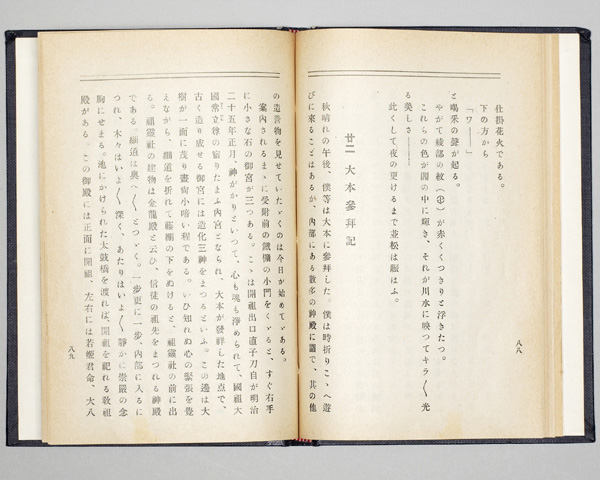 八八
仕掛花火である。
下の方から
「ワ――」
と喝采の聲が起る。
やがて綾部の紋(㊉)が赤くくつきりと浮きたつ。
これらの色が闇の中に輝き、それが川水に映つてキラ〱光
る美しさ――
此くして夜の更けるまで並松は賑はふ。
廿二 大本參拜記
秋晴れの午後、僕等は大本に參拜した。僕は時折りこゝへ遊
びに來ることはあるが、內部にある數多の神殿に詣で、其の他
の造營物を見せていたゞくのは今日が始めてゞある。
案内されるまゝに受附前の鐵柵の小門をくゞると、すぐ右手
に小さな石の御宮が三つある。こゝは開祖出口直子刀自が明治
二十五年正月、神がかりといつて、心も魂も淨められて、國祖大
國常立尊の宿りたまふ內宮となられ、大本が發祥した地點で、
古く造り成せる御宮には造化三神をまつるといふ。この邊は大
樹が一面に茂り晝尙小暗い程である。いひ知れぬ心の緊張を覺
えながら、細道を折れて藤棚の下をぬけると、祖靈社の前に出
る。祖靈社の建物は金龍殿と云ひ、信徒の祖先をまつれる神殿
である。細道は奧へ〱とつゞく。一步更に一步、內部に入るに
つれ、木々はいよ〱深く、あたりはいよ〱靜かに崇嚴の念
胸にせまる。池にかけられた太鼓橋を渡れば、開祖を祀れる敎祖
殿がある。この御殿には正面に開祖、左右には若姬君命、大八
八九